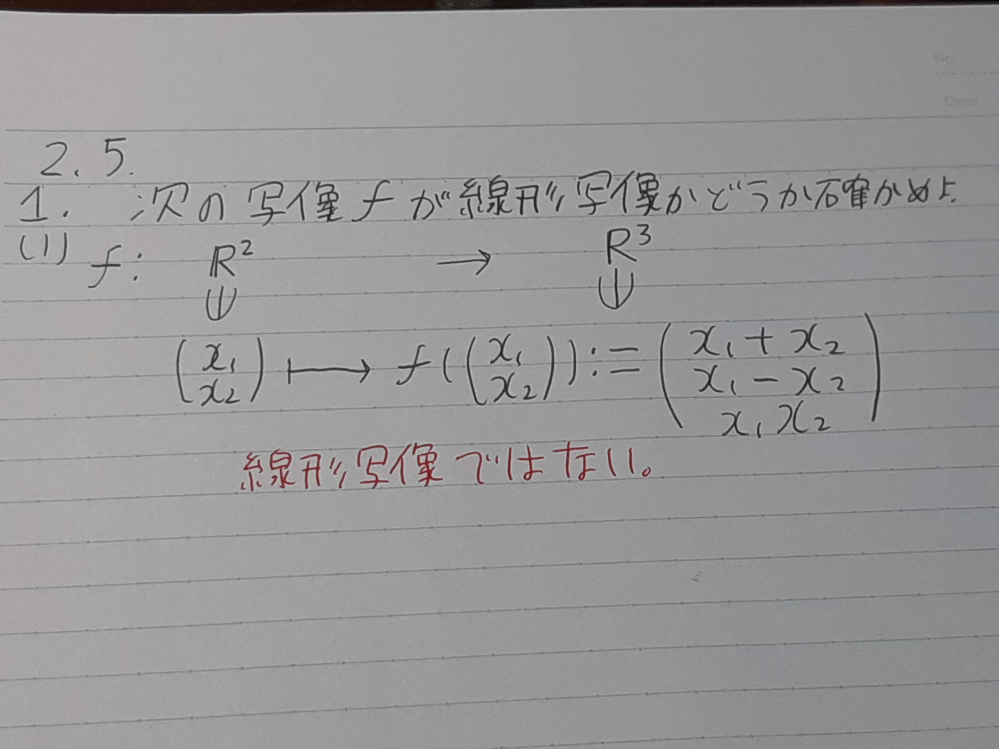 No.
Date
2.5.
1. 次の写像fが線形写像かどうか確かめよ.
(1) f: R² → R³
(x₁ x₂) ⟼ f((x₁ x₂)) := (x₁+x₂ x₁-x₂ x₁x₂)
線形写像ではない。